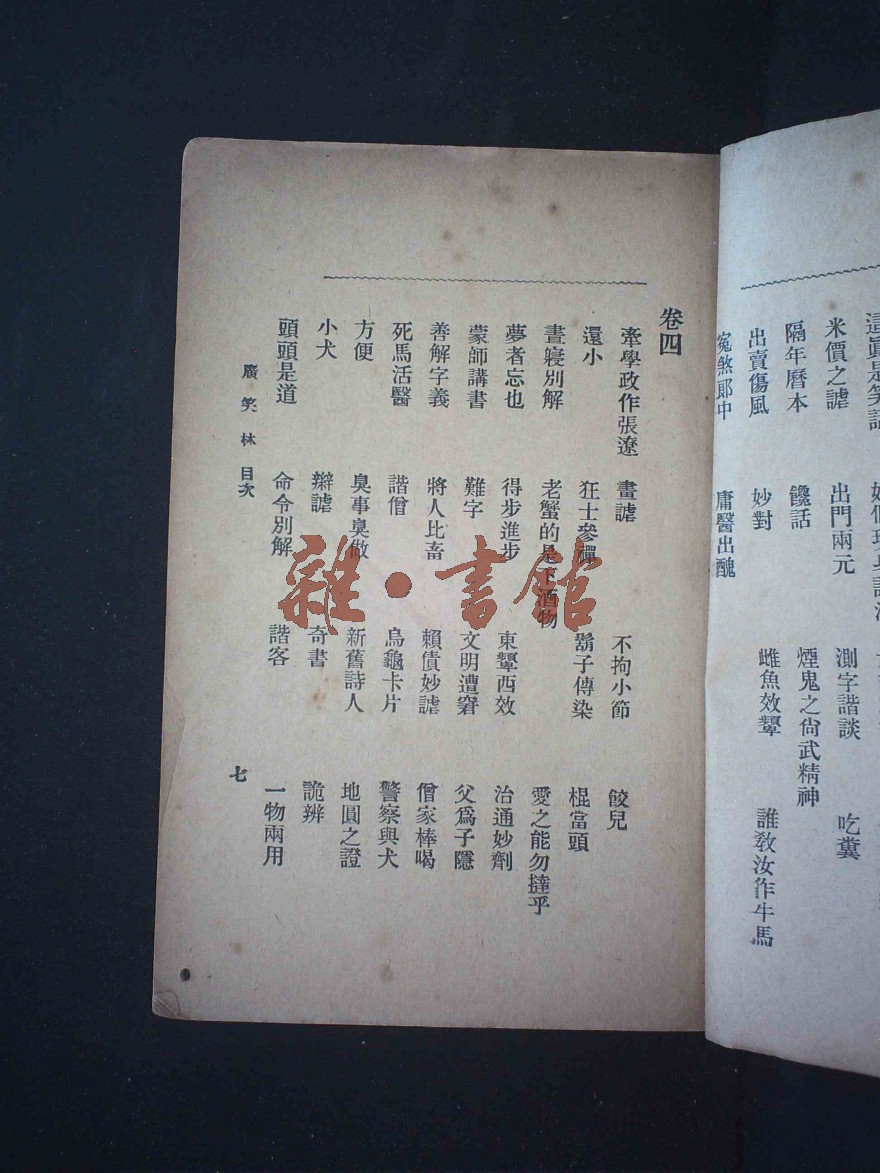 米價之謔　出門兩元　測字諧談　吃糞
隔年曆本　饞話　煙鬼之尙武精神
出賣傷風　妙對　雌魚效顰　誰敎汝作牛馬
寃煞郞中　庸醫出醜
卷四
牽學政作張遼　畫謔　不拘小節　餃兒
還小　狂士參禪　鬍子傳染　棍當頭
晝寢別解　老蟹的是下酒物　愛之能勿撻乎
夢者忘也　得步進步　東顰西效　治通妙劑
蒙師講書　難字　文明遭窘　父爲子隱
善解字義　將人比畜　賴債妙謔　僧家棒喝
死馬活醫　諧僧　烏龜卡片　警察與犬
方便　臭事臭做　新舊詩人　地圓之證
小犬　辯謔　奇書　詭辨
頭頭是道　命令別解　諧客　一物兩用
廣笑林　目次　七
雜·書館